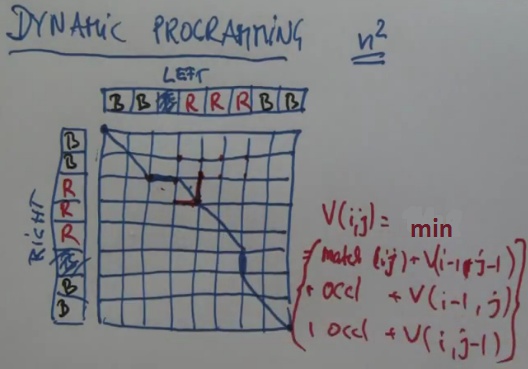 DYNAMIC PROGRAMMING n²
LEFT
B B R R R B B
RIGHT
B
B
R
R
R
B
B
V(i,j) = min
match (i,j) + V(i-1, j-1)
+ occl + V(i-1, j)
occl + V(i, j-1)